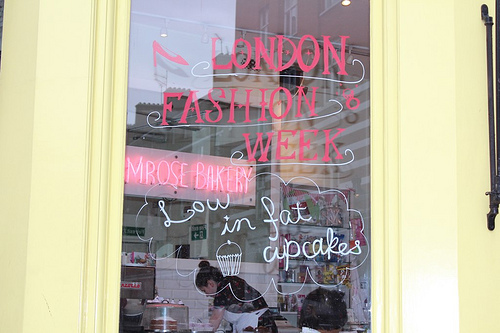 LONDON
FASHION
WEEK
MROSE BAKERY
Low
in fat
cupcakes